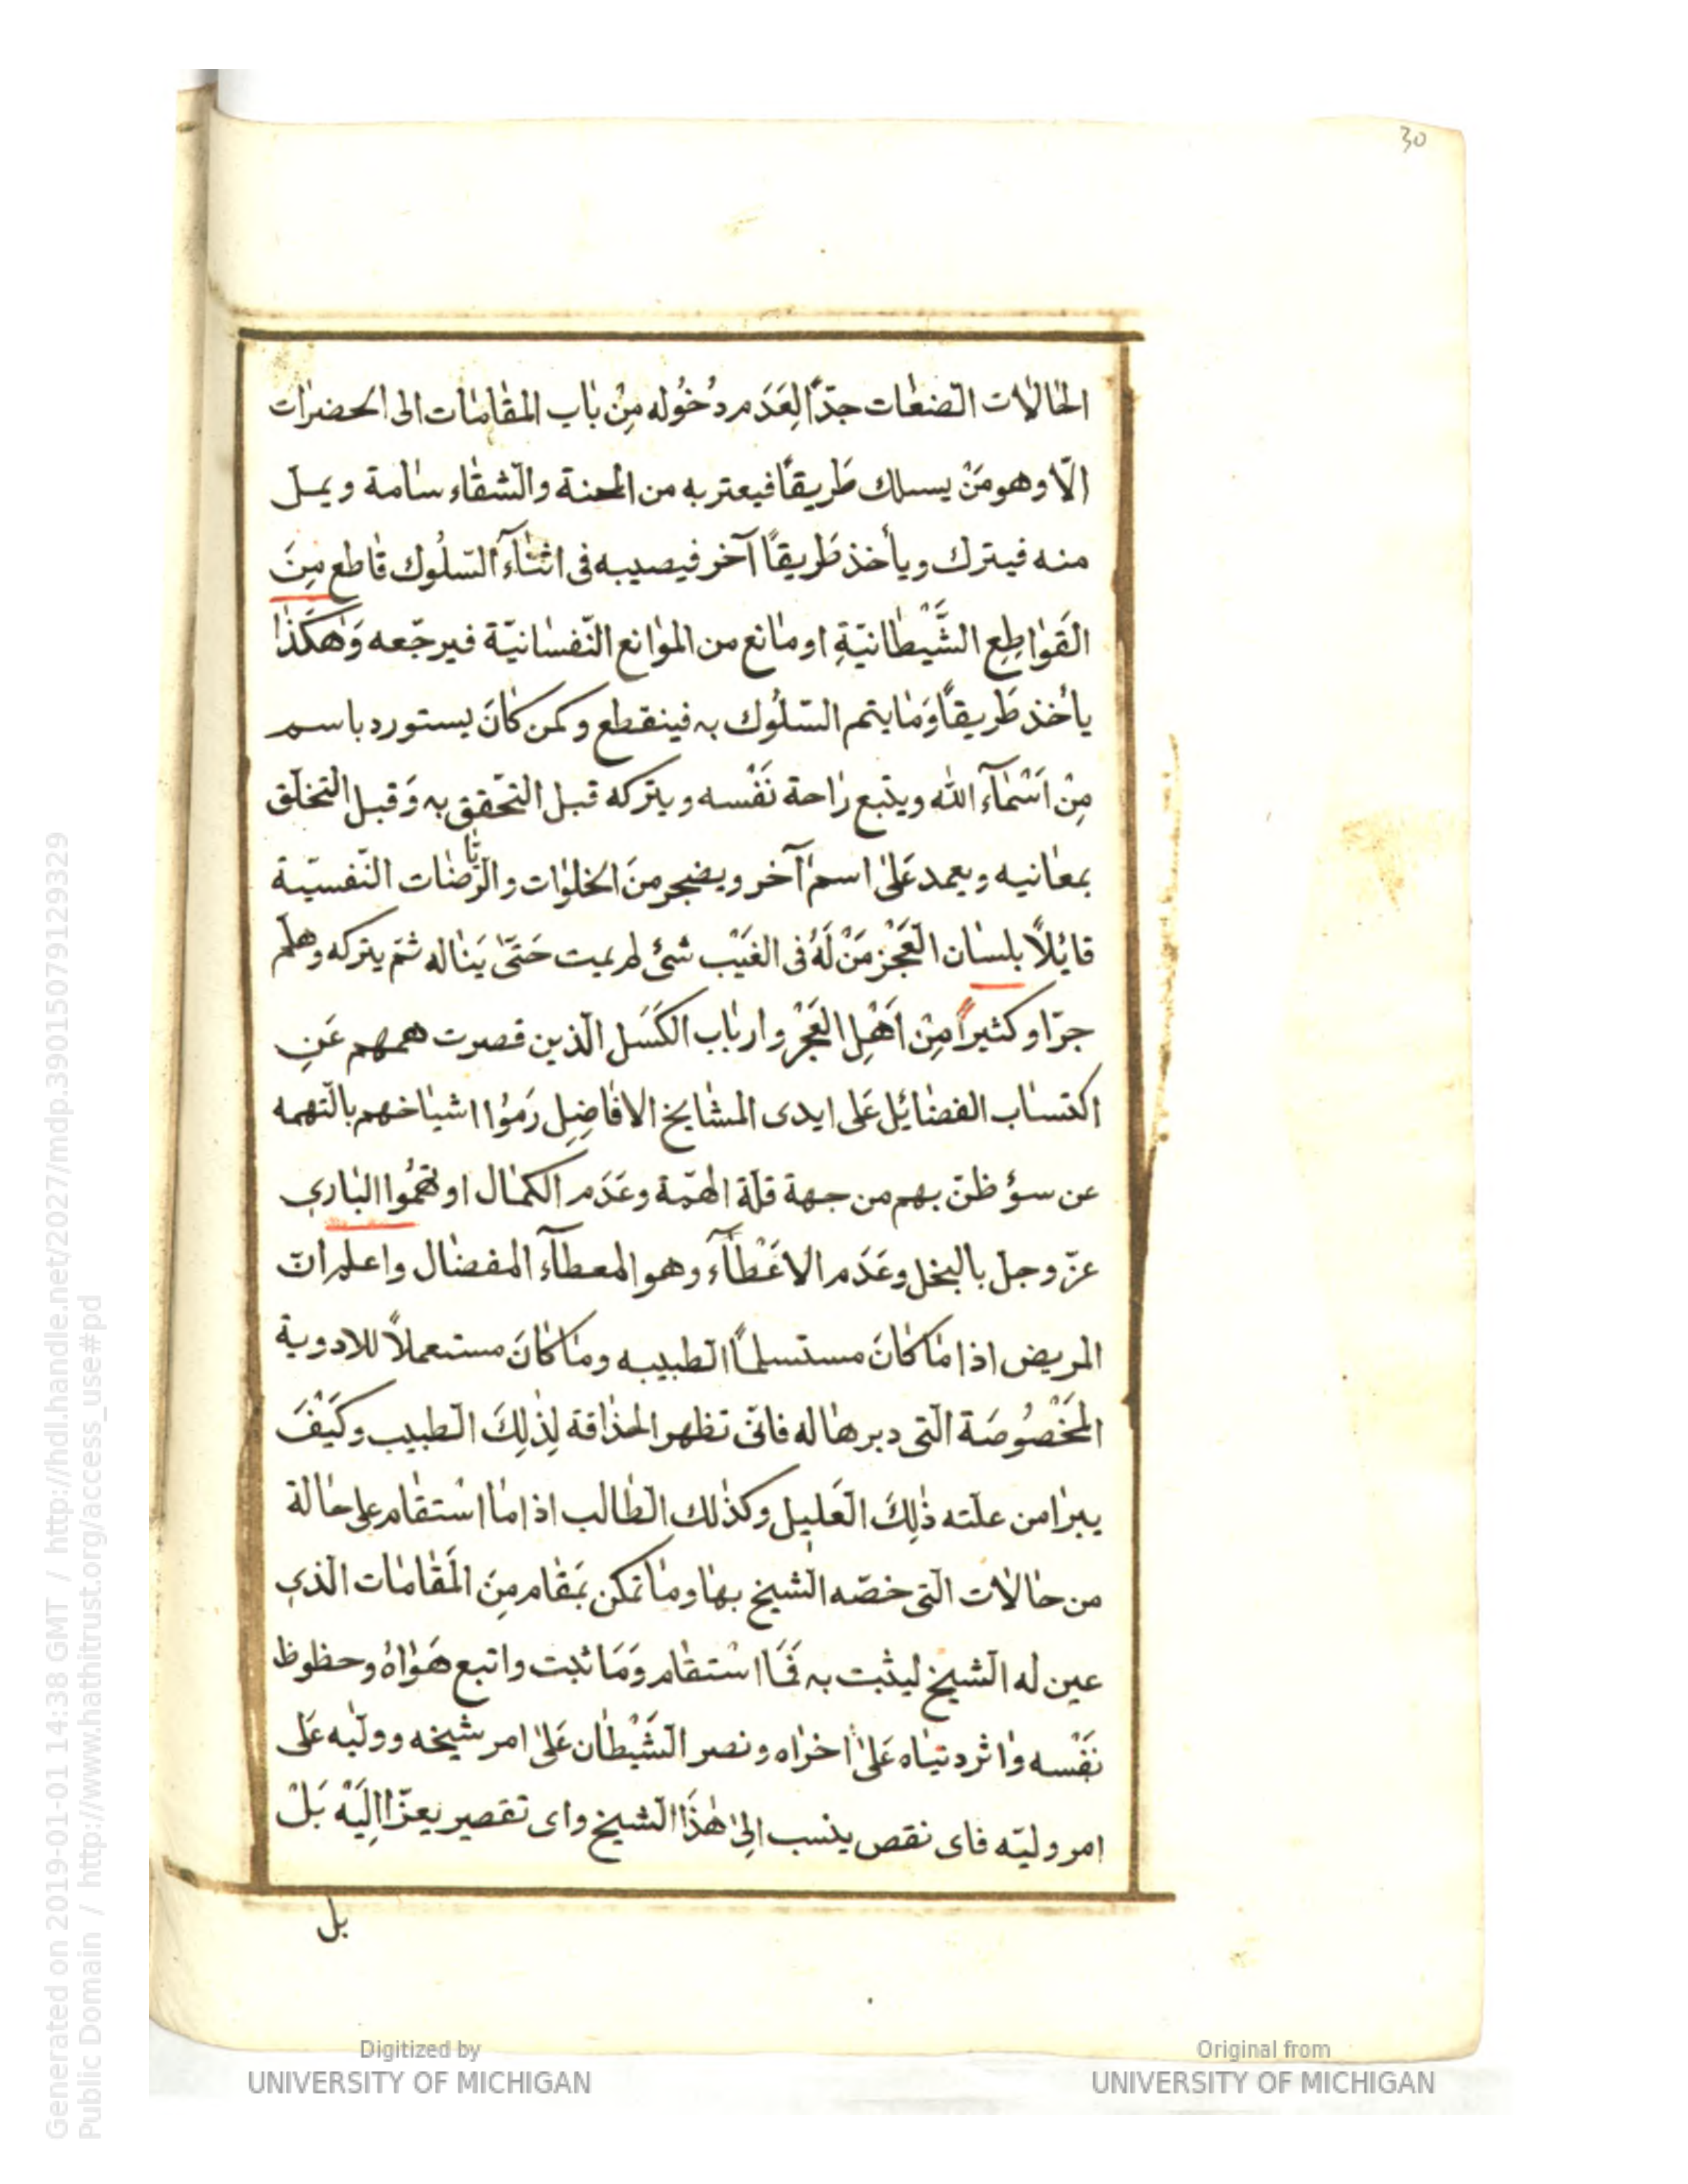 30
الحٰالٰات الصّنعٰات جدّاً لِعَدَم دخُوله مِنْ بٰاب المقٰامٰات الى الحضرٰات
الّا وهو مَنْ يسلك طَريقاً فيعتريه من المحنة والشقٰاء سٰامة ويملّ
منه فيترك ويأخذ طَريقاً آخر فيصيبه فى اثنٰآء السّلُوك قٰاطع مِنَ
القَوٰاطِعِ الشَّيْطٰانيّةِ او مٰانع من الموٰانع النّفسٰانيّة فيرجّعه وَهٰكَذٰا
يأخذ طَريقاً وَمٰا يتم السّلُوك به فينقطع وكمن كٰانَ يستورد باسم
مِنْ اَسْمٰآء اللّٰه ويتبع رٰاحة نَفْسه ويتركه قبل التحّقق به وَقبل التخلّق
بمعٰانيه ويعمد عَلىٰ اسم آخر ويضجر منَ الخلوٰات والرّيٰاضٰات النّفسيّة
قائلاً بلسٰان العَجْز مَنْ لَهُ فى الغَيْب شئ لم يمت حَتّىٰ يَنٰاله ثمّ يتركه وهلّم
جرّا وكثيراً مِنْ اَهْلِ العَجْز وارباب الكَسَل الّذين قصرت هممهم عَنِ
اكتسٰاب الفضٰائل عَلى ايدى المشٰايخ الافٰاضِل رَمَوْا اشيٰاخهم بالتّهمه
عن سؤ ظنّ بهم من جهة قلّة الهمّة وعَدَم الكمٰال او تّهمُوا البٰاري
عزّ وجلّ بالبخل وعَدَم الاعْطٰآء وهو المعطآء المفضٰال واعلم انّ
المريض اذا مٰا كٰانَ مستسلماً الطبيبه ومٰا كٰانَ مستعملاً للادوية
المَخْصُوصَة الّتى دبرهٰا له فانّى تظهر الحذٰاقة لِذٰلِكَ الطبيب وكَيْفَ
يبرٰا من علّته ذٰلِكَ العَليل وكذٰلك الطٰالب اذا مٰا اسْتقٰام على حٰالة
من حٰالٰات الّتى خصّه الشيخ بهٰا ومٰا تمكن بمَقٰام مِنَ المَقٰامٰات الذي
عين له الشيخ ليثبت به فمَٰا اسْتقٰام وَمَا ثبت واتبع هَوٰاهُ وحظوظ
نَفْسه وٰاثر دنيٰاه عَلىٰ اخرٰاه ونصر الشَّيْطٰان عَلىٰ امر شيخه ووليّه عَلى
امر وليّه فاى نقص ينسب اِلىٰ هٰذَا الشيخ واى تقصير يعزّا اِليْه بَلْ
بل
Generated on 2019-01-01 14:38 GMT / http://hdl.handle.net/2027/mdp.39015079129329
Public Domain / http://www.hathitrust.org/access_use#pd
Digitized by
UNIVERSITY OF MICHIGAN
Original from
UNIVERSITY OF MICHIGAN